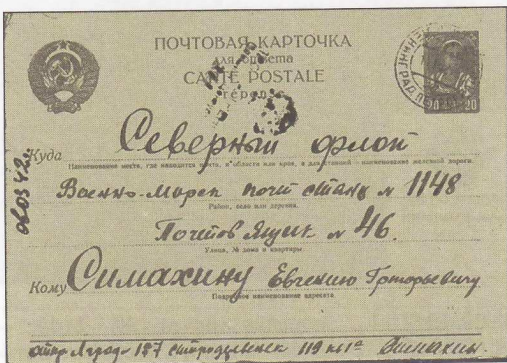 ПОЧТОВАЯ КАРТОЧКА
для ответа
CARTE POSTALE
réponse
20 20
Куда Северный флот
Наименование места, где находится почта, и области или края, а для станций – наименование железной дороги.
Военно-Морск почт станц № 1148
Район, село или деревня.
Почтов Ящик № 46.
Улица, № дома и квартиры.
Кому Симахину Евгению Григорьевичу
Подробное наименование адресата.
119 Симахин